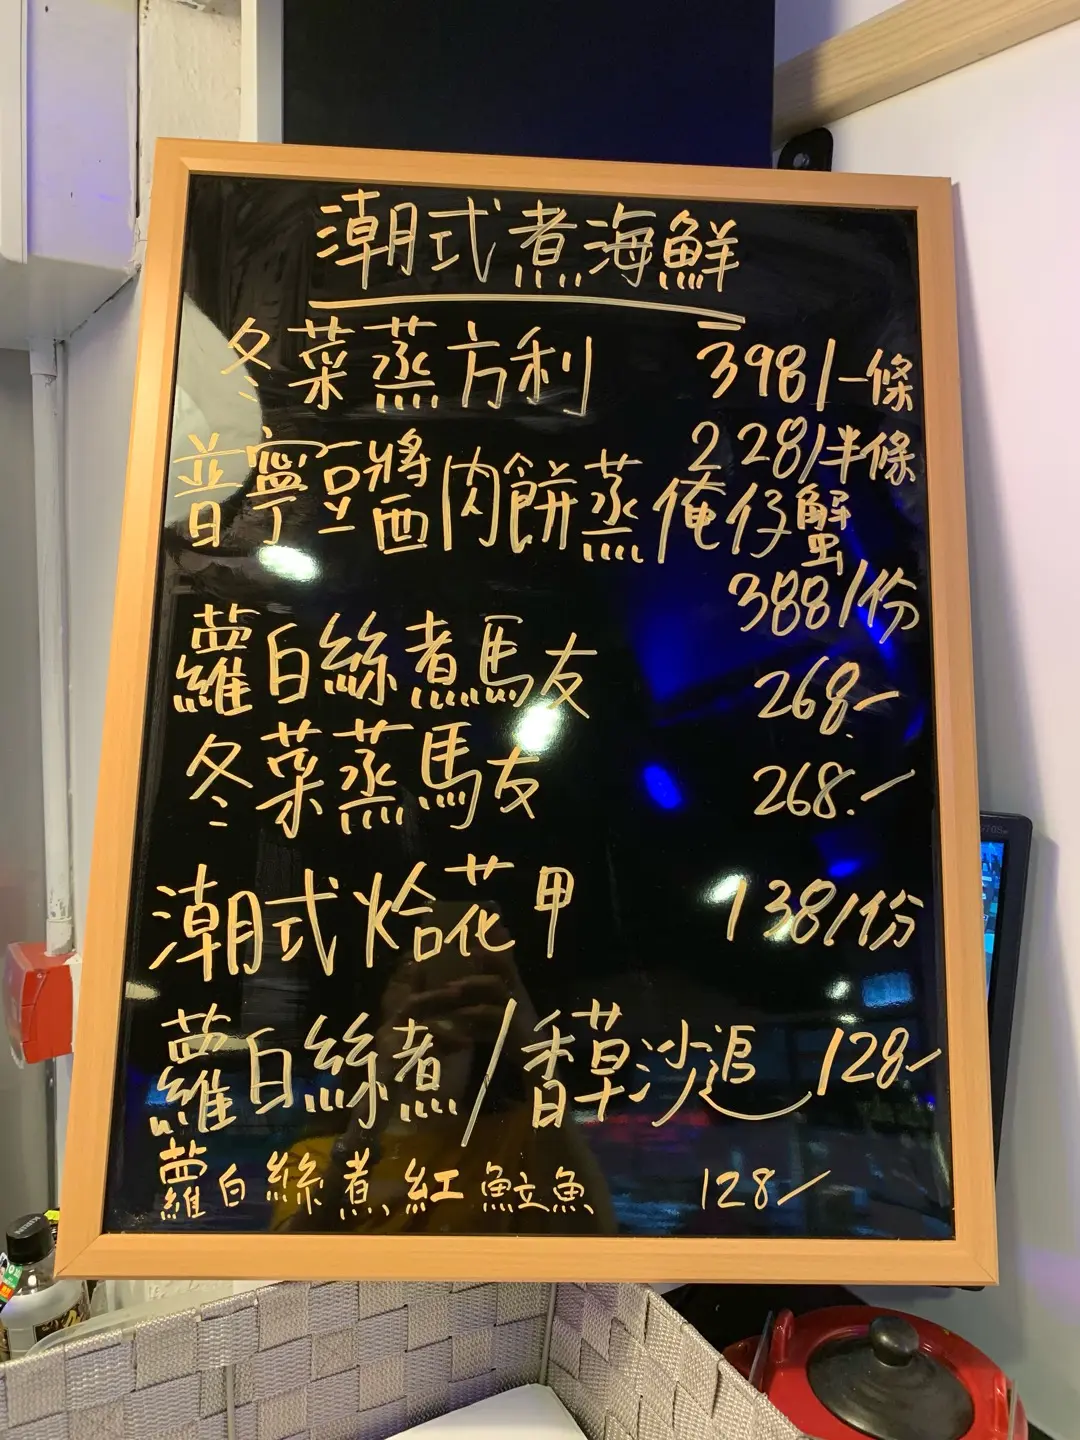 潮式煮海鮮
冬菜蒸方利 398/一條
228/半條
普寧豆醬肉餅蒸俺仔蟹
388/份
蘿白絲煮馬友 268.-
冬菜蒸馬友 268.-
潮式烚花甲 138/份
蘿白絲煮/香草沙追 128-
蘿白絲煮紅魚立魚 128-